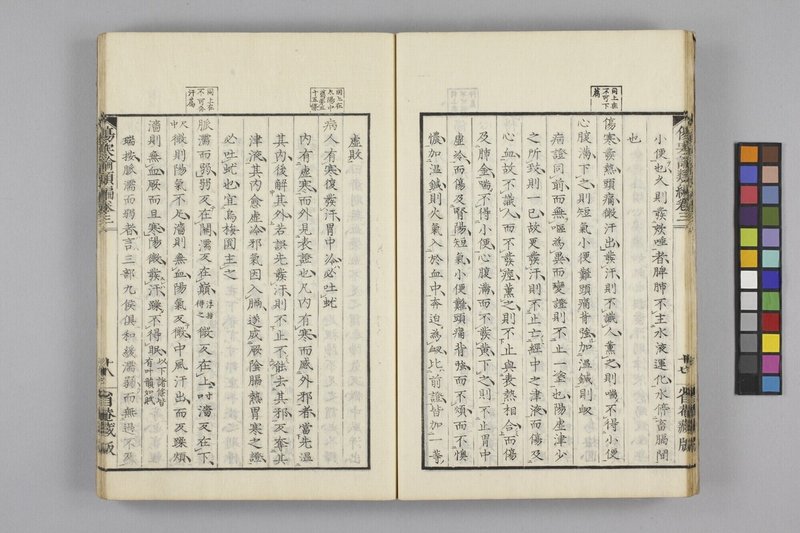 傷寒論類編卷三
小便也久則發欬唾者脾肺不主水液運化水停畜膈間
也
同上在不可下篇
傷寒發熱頭痛微汗出發汗則不識人熏之則喘不得小便
心腹滿下之則短氣小便難頭痛背強加温鍼則衄
病證同前而無嘔為異而變證則不止一塗也陽虛津少
之所致則一已故更發汗則不止亡經中之津液而傷及
心血故不識人而不發痙熏之則不止與表熱相合而傷
及肺金喘不得小便心腹滿而不發黃下之則不止胃中
虛冷而傷及腎陽短氣小便難頭痛背強而不煩而不懊
憹加温鍼則火氣入於血中奔迫為衄比前證皆加一等
虛敗
病人有寒復發汗胃中冷必吐蚘
內有虛寒而外見表證也凡內有寒而感外邪者當先温
其內後解其外若誤先發汗則不止不能去其邪又奪其
津液其內愈虛冷邪氣因入膈遂成厥陰膈熱胃寒之證
必吐蚘也宜烏梅圓主之
同上在不可發汗篇
脈濡而弱弱反在關濡反在巔微反在上濇反在下
微則陽氣不足濇則無血陽氣反微中風汗出而反躁煩
濇則無血厥而且寒陽微發汗躁不得眠
瑞按脈濡而弱者言三部九候俱和緩濡弱而無過不及
傷寒論類編卷三